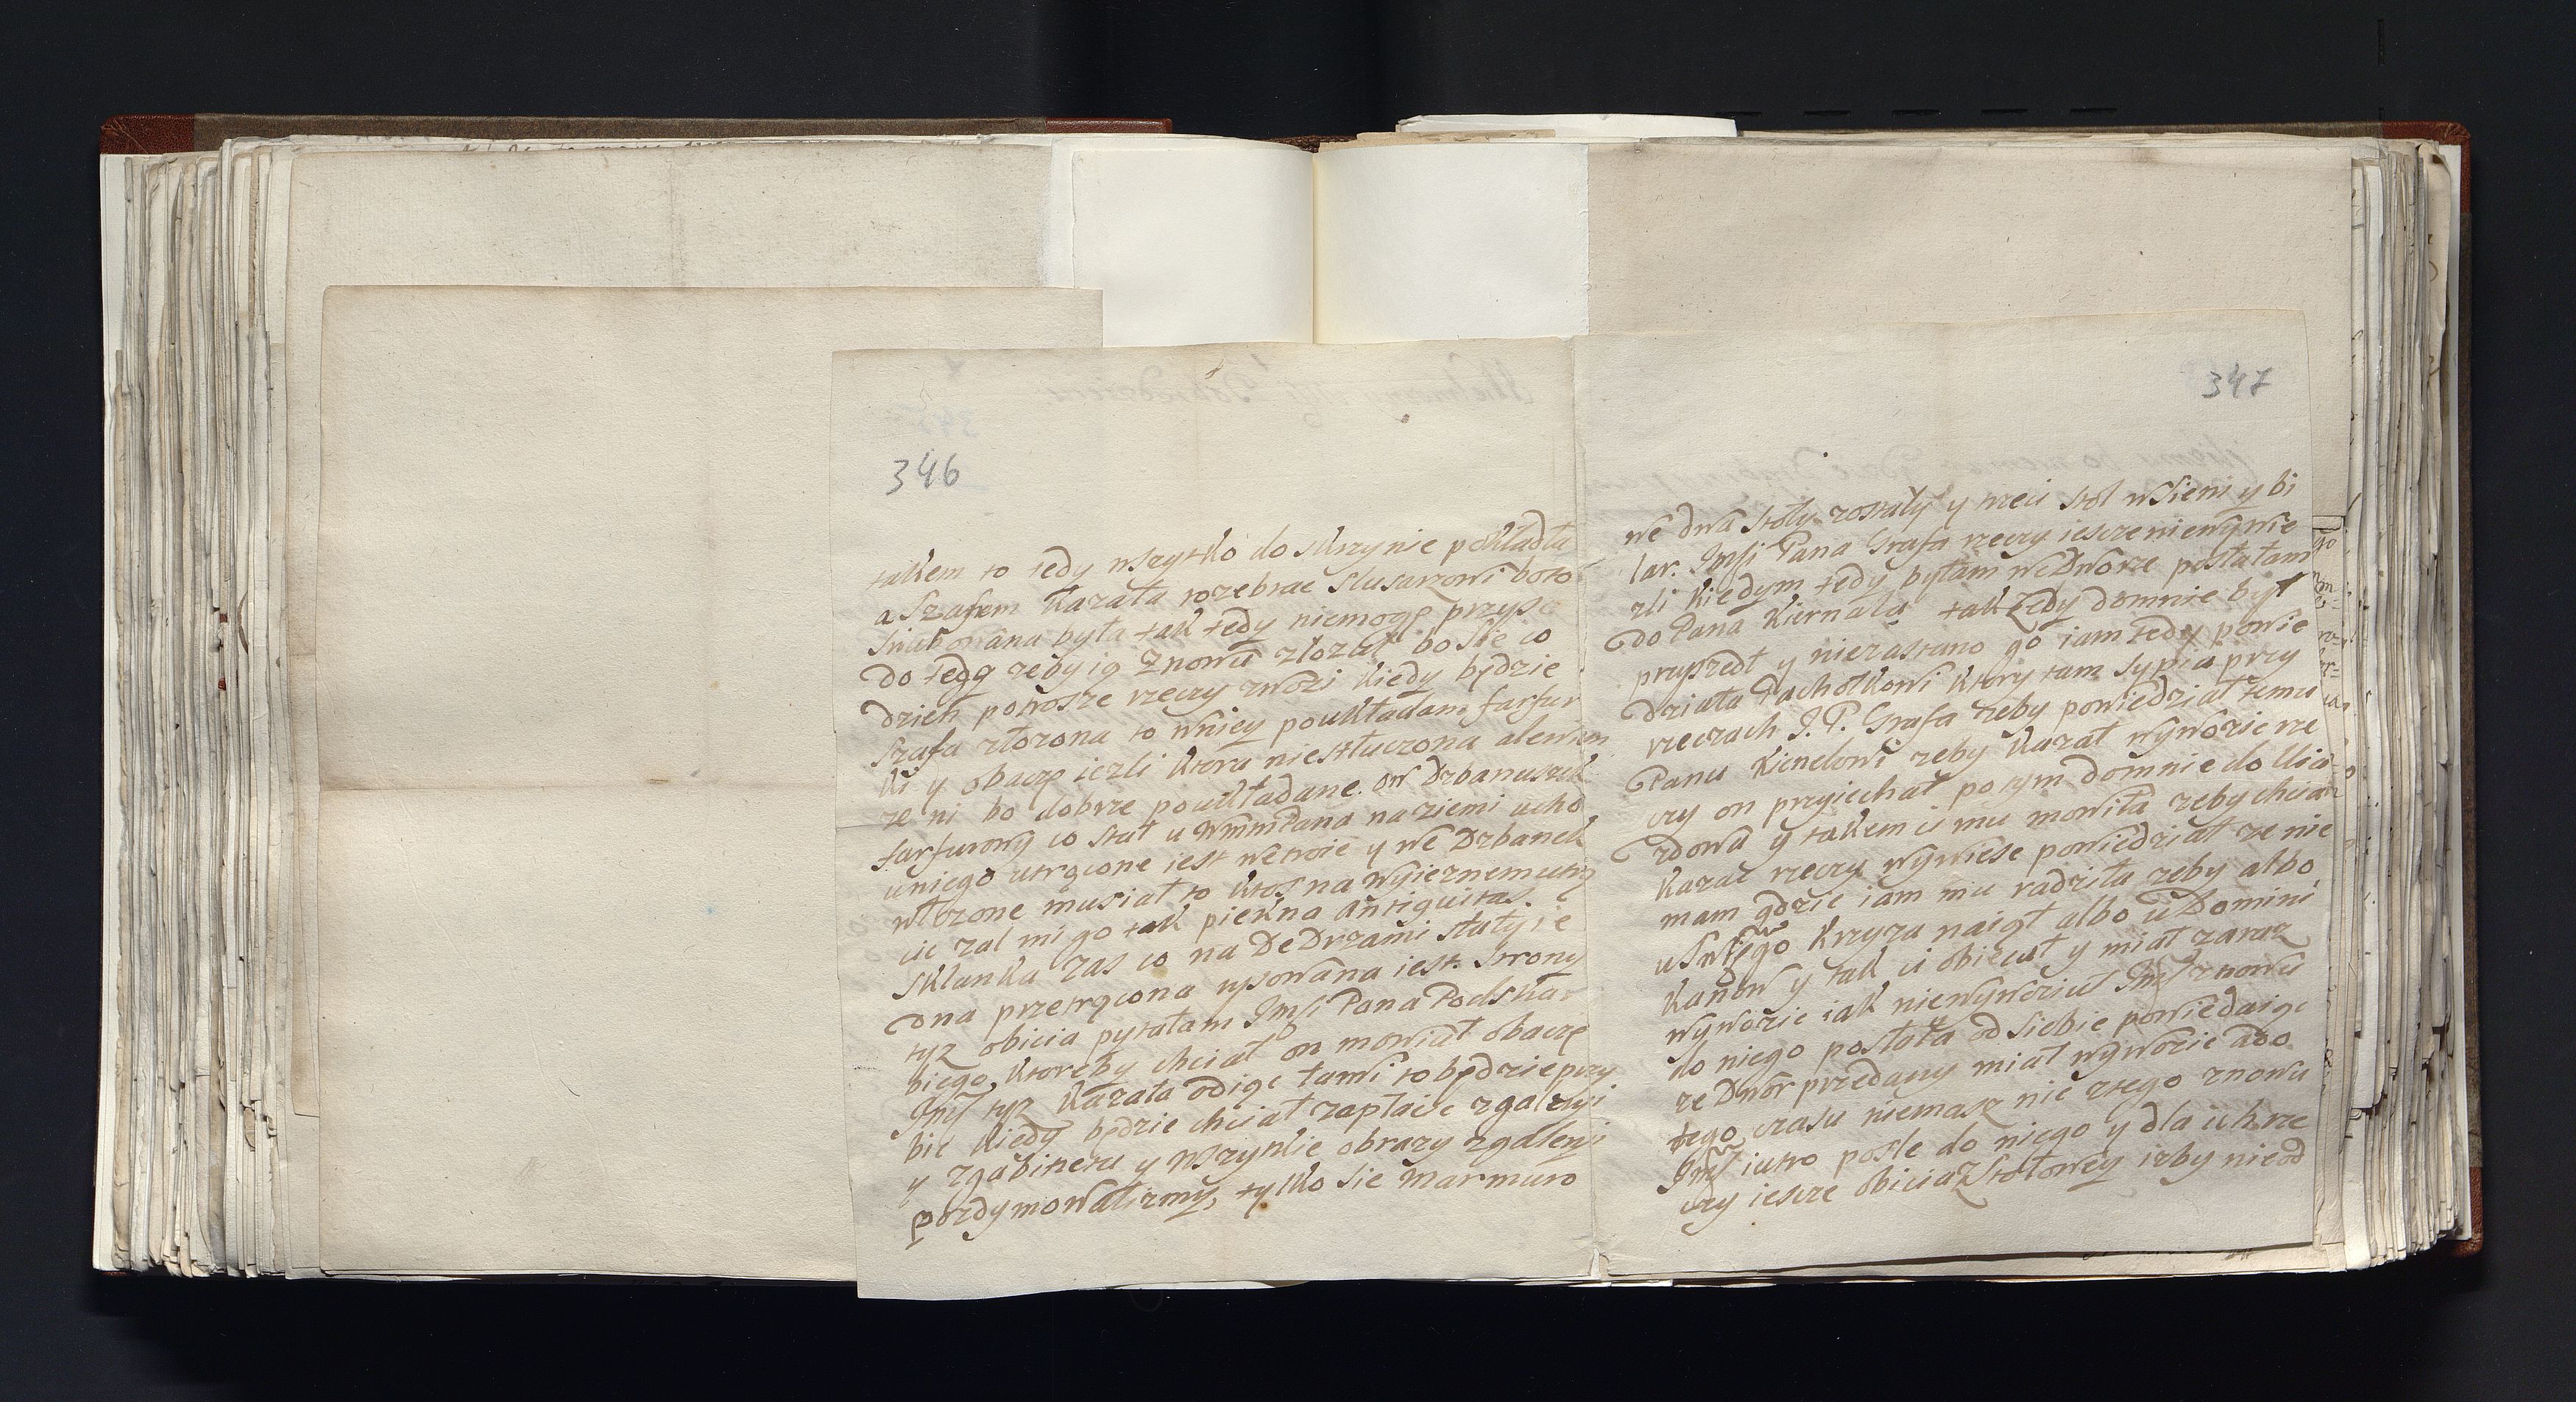 346
takem to tedy wszytko do skrzynie pokładła
a Szafem Kazała rozebrac Slusarzowi boto
Srubowana była tak tedy niemogę przyse
do tegg zeby ią znowu złozał bo Sie co
dzien potrosze rzeczy zwozi kiedy będzie
Szafa złozona to wniey poukładam farfur
ki y obaczę iezli ktora niestłuczona alewiem
ze ni bo dobrze poukładane. ow Dzbanuszek
farfurowy co stał u WmmPana naziemi ucho
uniego utrącone iest wetroie y we Dzbanek
włozone musiał to ktos na
cic zal mi go tak piekna antiquitas.
Sklanka zas co na De Drzami stały ie
dna przetrącona rysowana iest. Strony
tyz obicia pytałam Jmsi Pana Podskar
biego, ktoreby chciał on mowiał obaczę
Jms tyz Kazała odiąc ławi to będzie przy
bic kiedy będzie chciał zapłacic zgaleryi
y zgabinetu y wszytkie obrazy zgalleryi
pozdymowalizmy, tylko sie marmuro
347
we dwa stoły zostały y trzeci stol wSieni y bi
lar. Jmsi Pana Grafa rzeczy iescze niewywie
zli kiedym tedy byłam weDworze posłałam
do Pana Kiernala tak tedy domnie był
przyszedł y niezastano go iam tedy powie
działa Pachołkowi ktory tam sypia przy
rzeczach J. P. Grafa zeby powiedział temu
Panu Kienelowi zeby kazał wywozic rze
czy on przyiechał potym domnie do Uia
zdowa y takem ci mu mowiła zeby chciał
Kazac rzeczy wywiesc powiedział ze nie
mam gdzie iam mu radziła zeby albo
u Swięgo Krzyza naiął albo u Domini
kanow y tak ci obiecał y miał zaraz
wywozic iak niewywoził Jms znowu
do niego posłała od siebie powiedaiąc
ze Dwor przedany miał wywozic ado
tego czasu niemasz nic ztego znowu
Jms iutro posle do niego y dla ich rze
czy iescze obicia zStołowey izby nieod